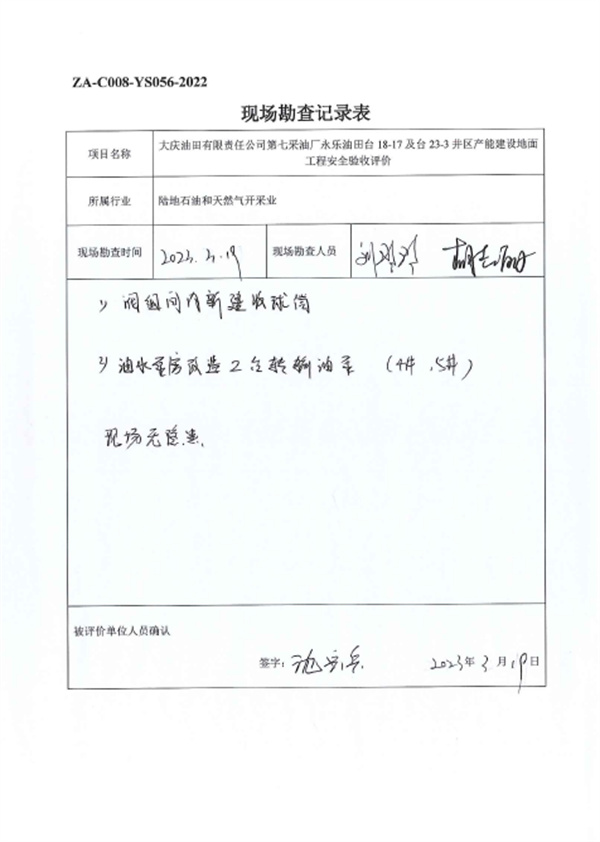 ZA-C008-YS056-2022
现场勘查记录表
项目名称
大庆油田有限责任公司第七采油厂永乐油田台 18-17 及台 23-3 井区产能建设地面
工程安全验收评价
所属行业
陆地石油和天然气开采业
现场勘查时间
2023.3.19
现场勘查人员
1) 阀组间内新建收球筒
2) 油水泵房改造 2 台转输油泵 (4#、5#)
现场无隐患.
被评价单位人员确认
签字：
2023年 3 月 19 日